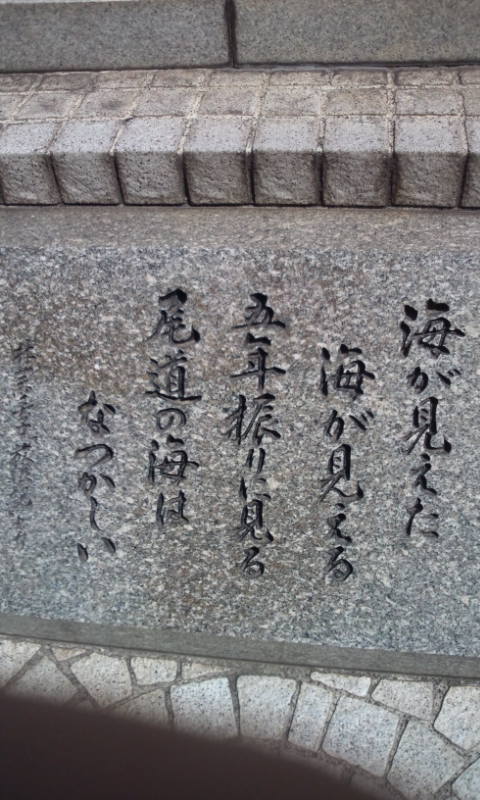 海が見えた
海が見える
五年振りに見る
尾道の海は
なつかしい